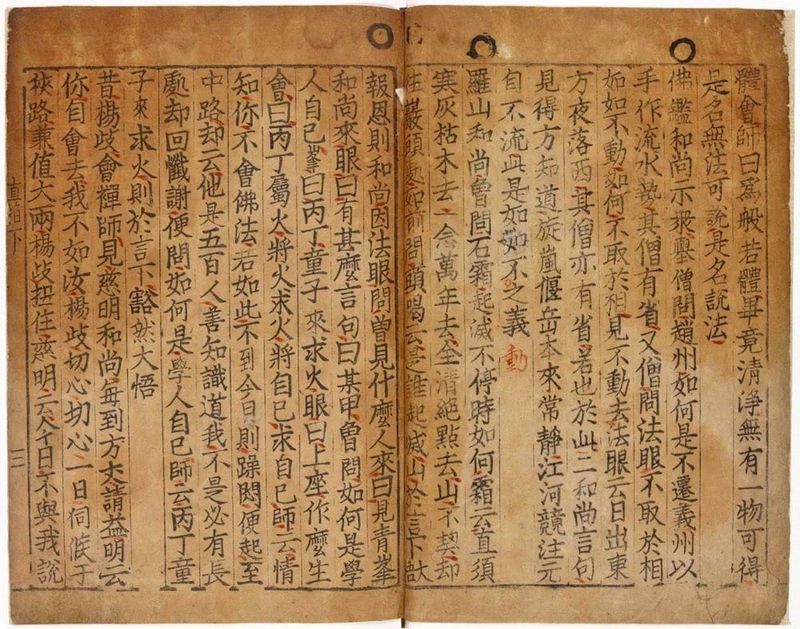 體會師曰爲般若體畢竟清淨無有一物可得
是名無法可說是名說法
佛鑑和尚示衆擧僧問趙州如何是不遷義州以
手作流水勢其僧有省又僧問法眼不取於相
如如不動如何不取於相見不動去法眼云日出東
方夜落西其僧亦有省若也於此二和尚言句
見得方知道旋嵐偃岳本來常靜江河競注元
自不流此是如如不之義 動
羅山和尚曾問石霜起滅不停時如何霜云直須
寒灰枯木去一念萬年去全清絕點去山不契却
往巖頭處如前問頭喝云是誰起滅山於言下
報恩則和尚因法眼問曾見什麼人來曰見青峯
和尚來眼曰有甚麼言句曰某甲曾問如何是學
人自己峯曰丙丁童子來求火眼曰上座作麼生
會曰丙丁屬火將火求火將自己求自己師云情
知你不會佛法若如此不到今日則躁悶便起至
中路却云他是五百人善知識道我不是必有長
處却回懺謝便問如何是學人自己師云丙丁童
子來求火則於言下豁然大悟
昔楊歧會禪師見慈明和尚每到方丈請益明云
你自會去我不如汝楊歧切心切心一日伺候于
狹路兼值大雨楊歧扭住慈明云今日不與我說
直指下